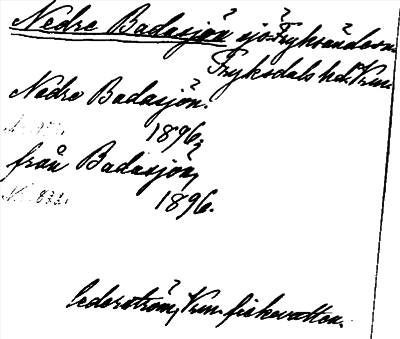 Nedre Badasjön sjö Fryksände sn.
Fryksdals hd. Vrm.
Nedre Badasjön.
1896,
från Badasjön,
1896.
Cederström, Vrm. fiskevatten.